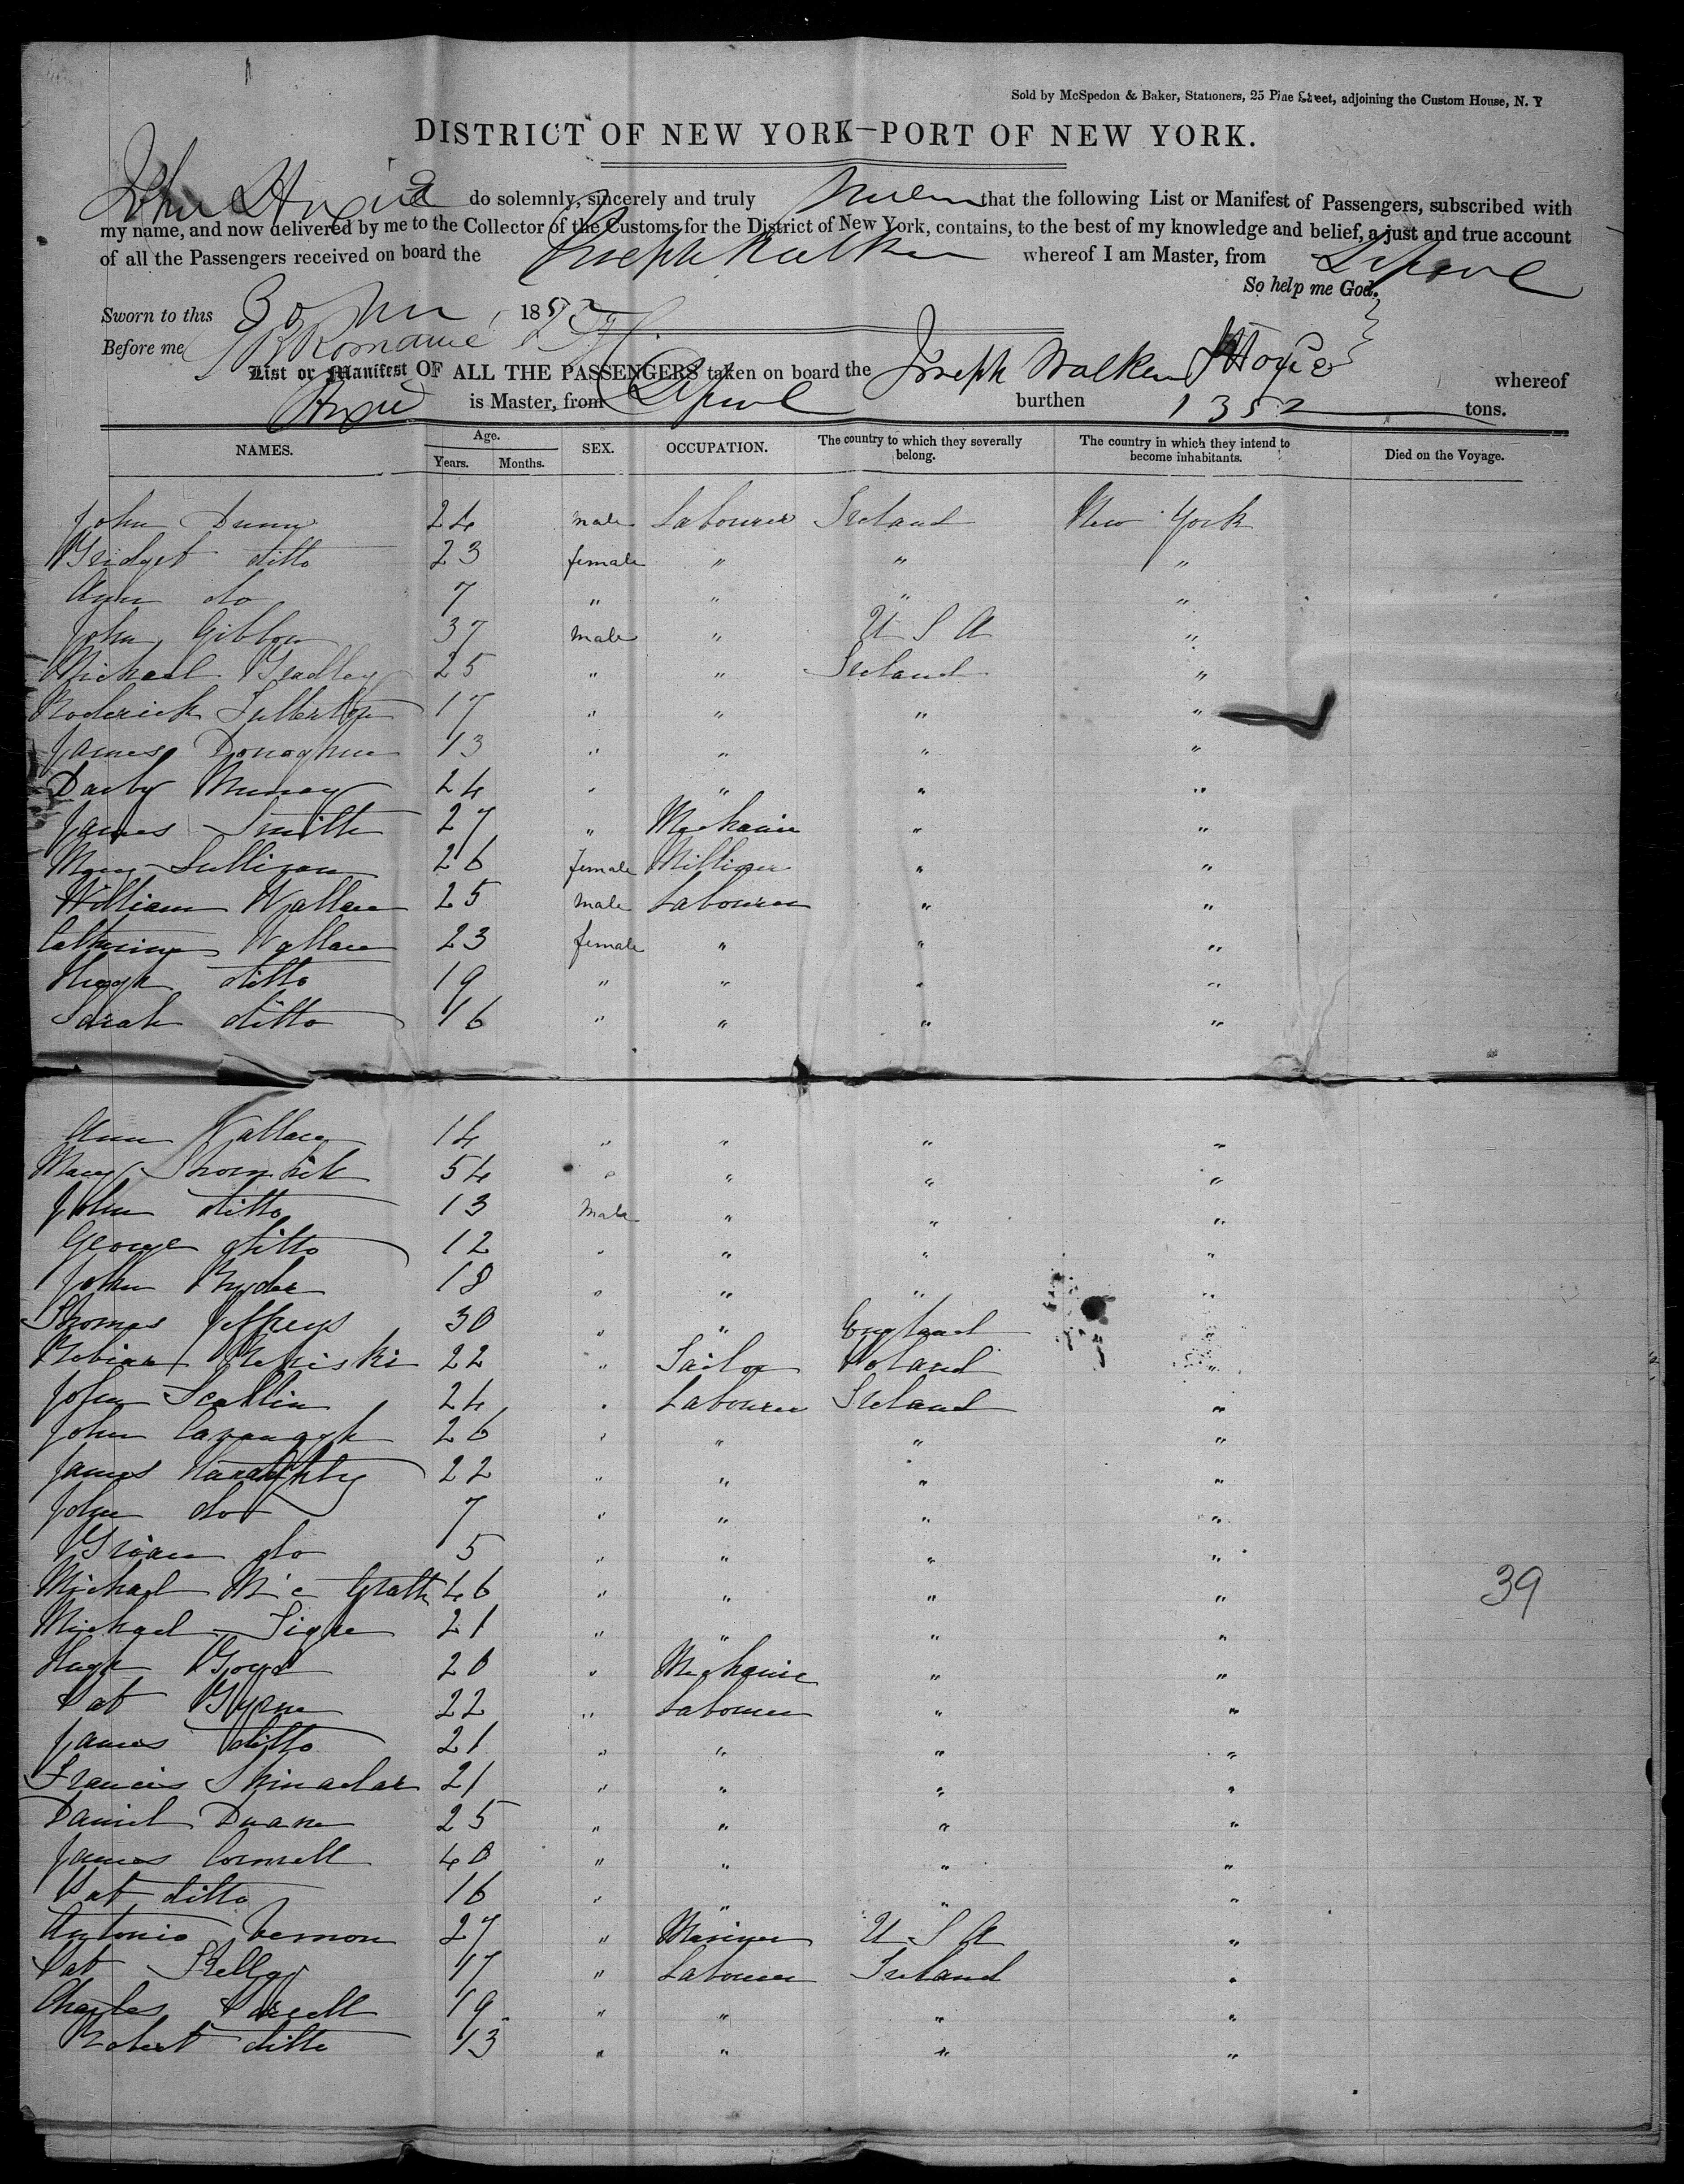 Sold by McSpedon & Baker, Stationers, 25 Pine Street, adjoining the Custom House, N. Y
DISTRICT OF NEW YORK—PORT OF NEW YORK.
John do solemnly, sincerely and truly that the following List or Manifest of Passengers, subscribed with
my name, and now delivered by me to the Collector of the Customs for the District of New York, contains, to the best of my knowledge and belief, a just and true account
of all the Passengers received on board the Joseph Walker whereof I am Master, from Lpool
So help me God.
Sworn to this 30 185
Before me
List or Manifest OF ALL THE PASSENGERS taken on board the Joseph Walker whereof
is Master, from Lpool burthen 1352 tons.
NAMES. Age. Years. Months. SEX. OCCUPATION. The country to which they severally belong. The country in which they intend to become inhabitants. Died on the Voyage.
John Dunn 24 male Labourer Ireland New York
Bridget ditto 23 female " " "
Ann do 7 " " " "
John Gibbon 37 male " U S A "
Michael Bradley 25 " " Ireland "
Roderick Fullerton 17 " " " "
James Donoghue 13 " " " "
Darby Murray 24 " " " "
James Smith 27 " Mechanic " "
Mary Sullivan 26 female Milliner " "
William Wallace 25 male Labourer " "
Catherine Wallace 23 female " " "
Hugh ditto 19 " " " "
Sarah ditto 16 " " " "
Ann Wallace 14 " " " "
Mary 54 " " " "
John ditto 13 male " " "
George ditto 12 " " " "
John Ryder 18 " " " "
Thomas Jeffreys 30 " " England "
22 " Poland "
John Scallin 24 " Labourer Ireland "
John Cavanagh 26 " " " "
James 22 " " " "
John do 7 " " " "
Brian do 5 " " " "
Michael Mc Grath 46 " " " "
39
Michael Tighe 21 " " " "
Hugh Boyd 20 " Mechanic " "
Pat Byrne 22 " Labourer " "
James ditto 21 " " " "
Francis 21 " " " "
Daniel Duane 25 " " " "
James Connell 40 " " " "
Pat ditto 16 " " " "
Antonio Vernon 27 " Mariner U S A "
Pat Kelly 17 " Labourer Ireland "
Charles 19 " " " "
Robert ditto 13 " " " "